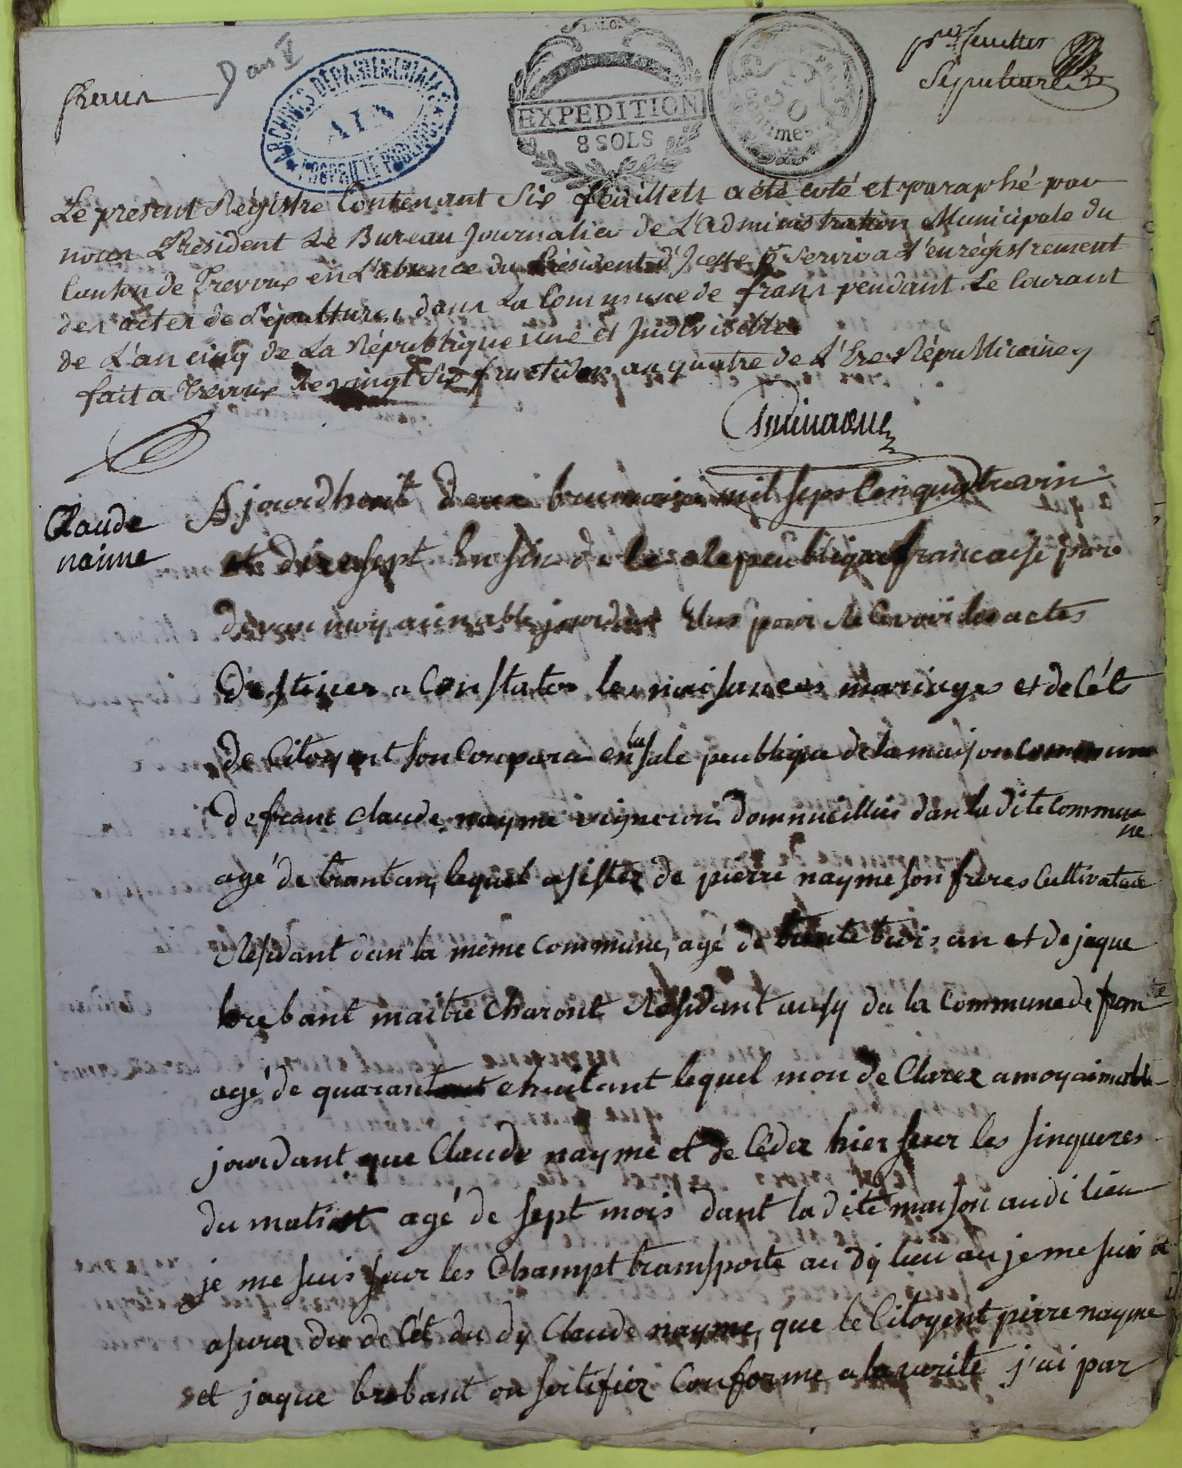 frans
D an V
ARCHIVES DÉPARTEMENTALES
AIN
PROPRIÉTÉ PUBLIQUE
EXPEDITION
8 SOLS
p.er feuillet
Sépulture
Le présent Régistre Contenant Six feuillets a été coté et paraphé par
nous Président Le Bureau Journalier de L'administration Municipale du
Canton de Trevoux en L'absence du Président d'Icelle pr Servir a L'enrégistrement
des actes de Sépultures dans La Commune de frans pendant Le Courant
de L'an cinq de La République une et Indivisible
fait a Trevoux Le vingt Six fructidor an quatre de L'Ere Républicaine
Claude
naime
Ajourdhouit deux brumaire mil sept Cen quatrevin
et diresept Ensin de le Repeublique francaise pare
devan moy aimable jourdant Elus pour Recevoir les actes
Destiner a Constater les naisances mariages et deCét
de Citoyent son Conpara en la sale peublique de la maison commune
de franc Claude nayme vigneron dommicillier dan la dite Commu
ne
agé de trantan, lequel asister de pierre nayme son freres Cultivateur
Résidant dan la même Commune, agé de trante trois an et de jaque
brebant maitre Charont Residant ausy da la Commune de fran
agé de quarant ehuitant lequel mon de Clarez a moy aimable
jourdant que Claude nayme et de Céder hier sur les sinqueres
du matient agé de sept mois dant la dite maison audi lieu
je me suis sur les Champt transporte au dy lieu au je me suis
asurer du de Cét du dy Claude nayme, que le Citoyent pierre nayme
et jaque brebant on sertifier Conforme a la verité j'ai par